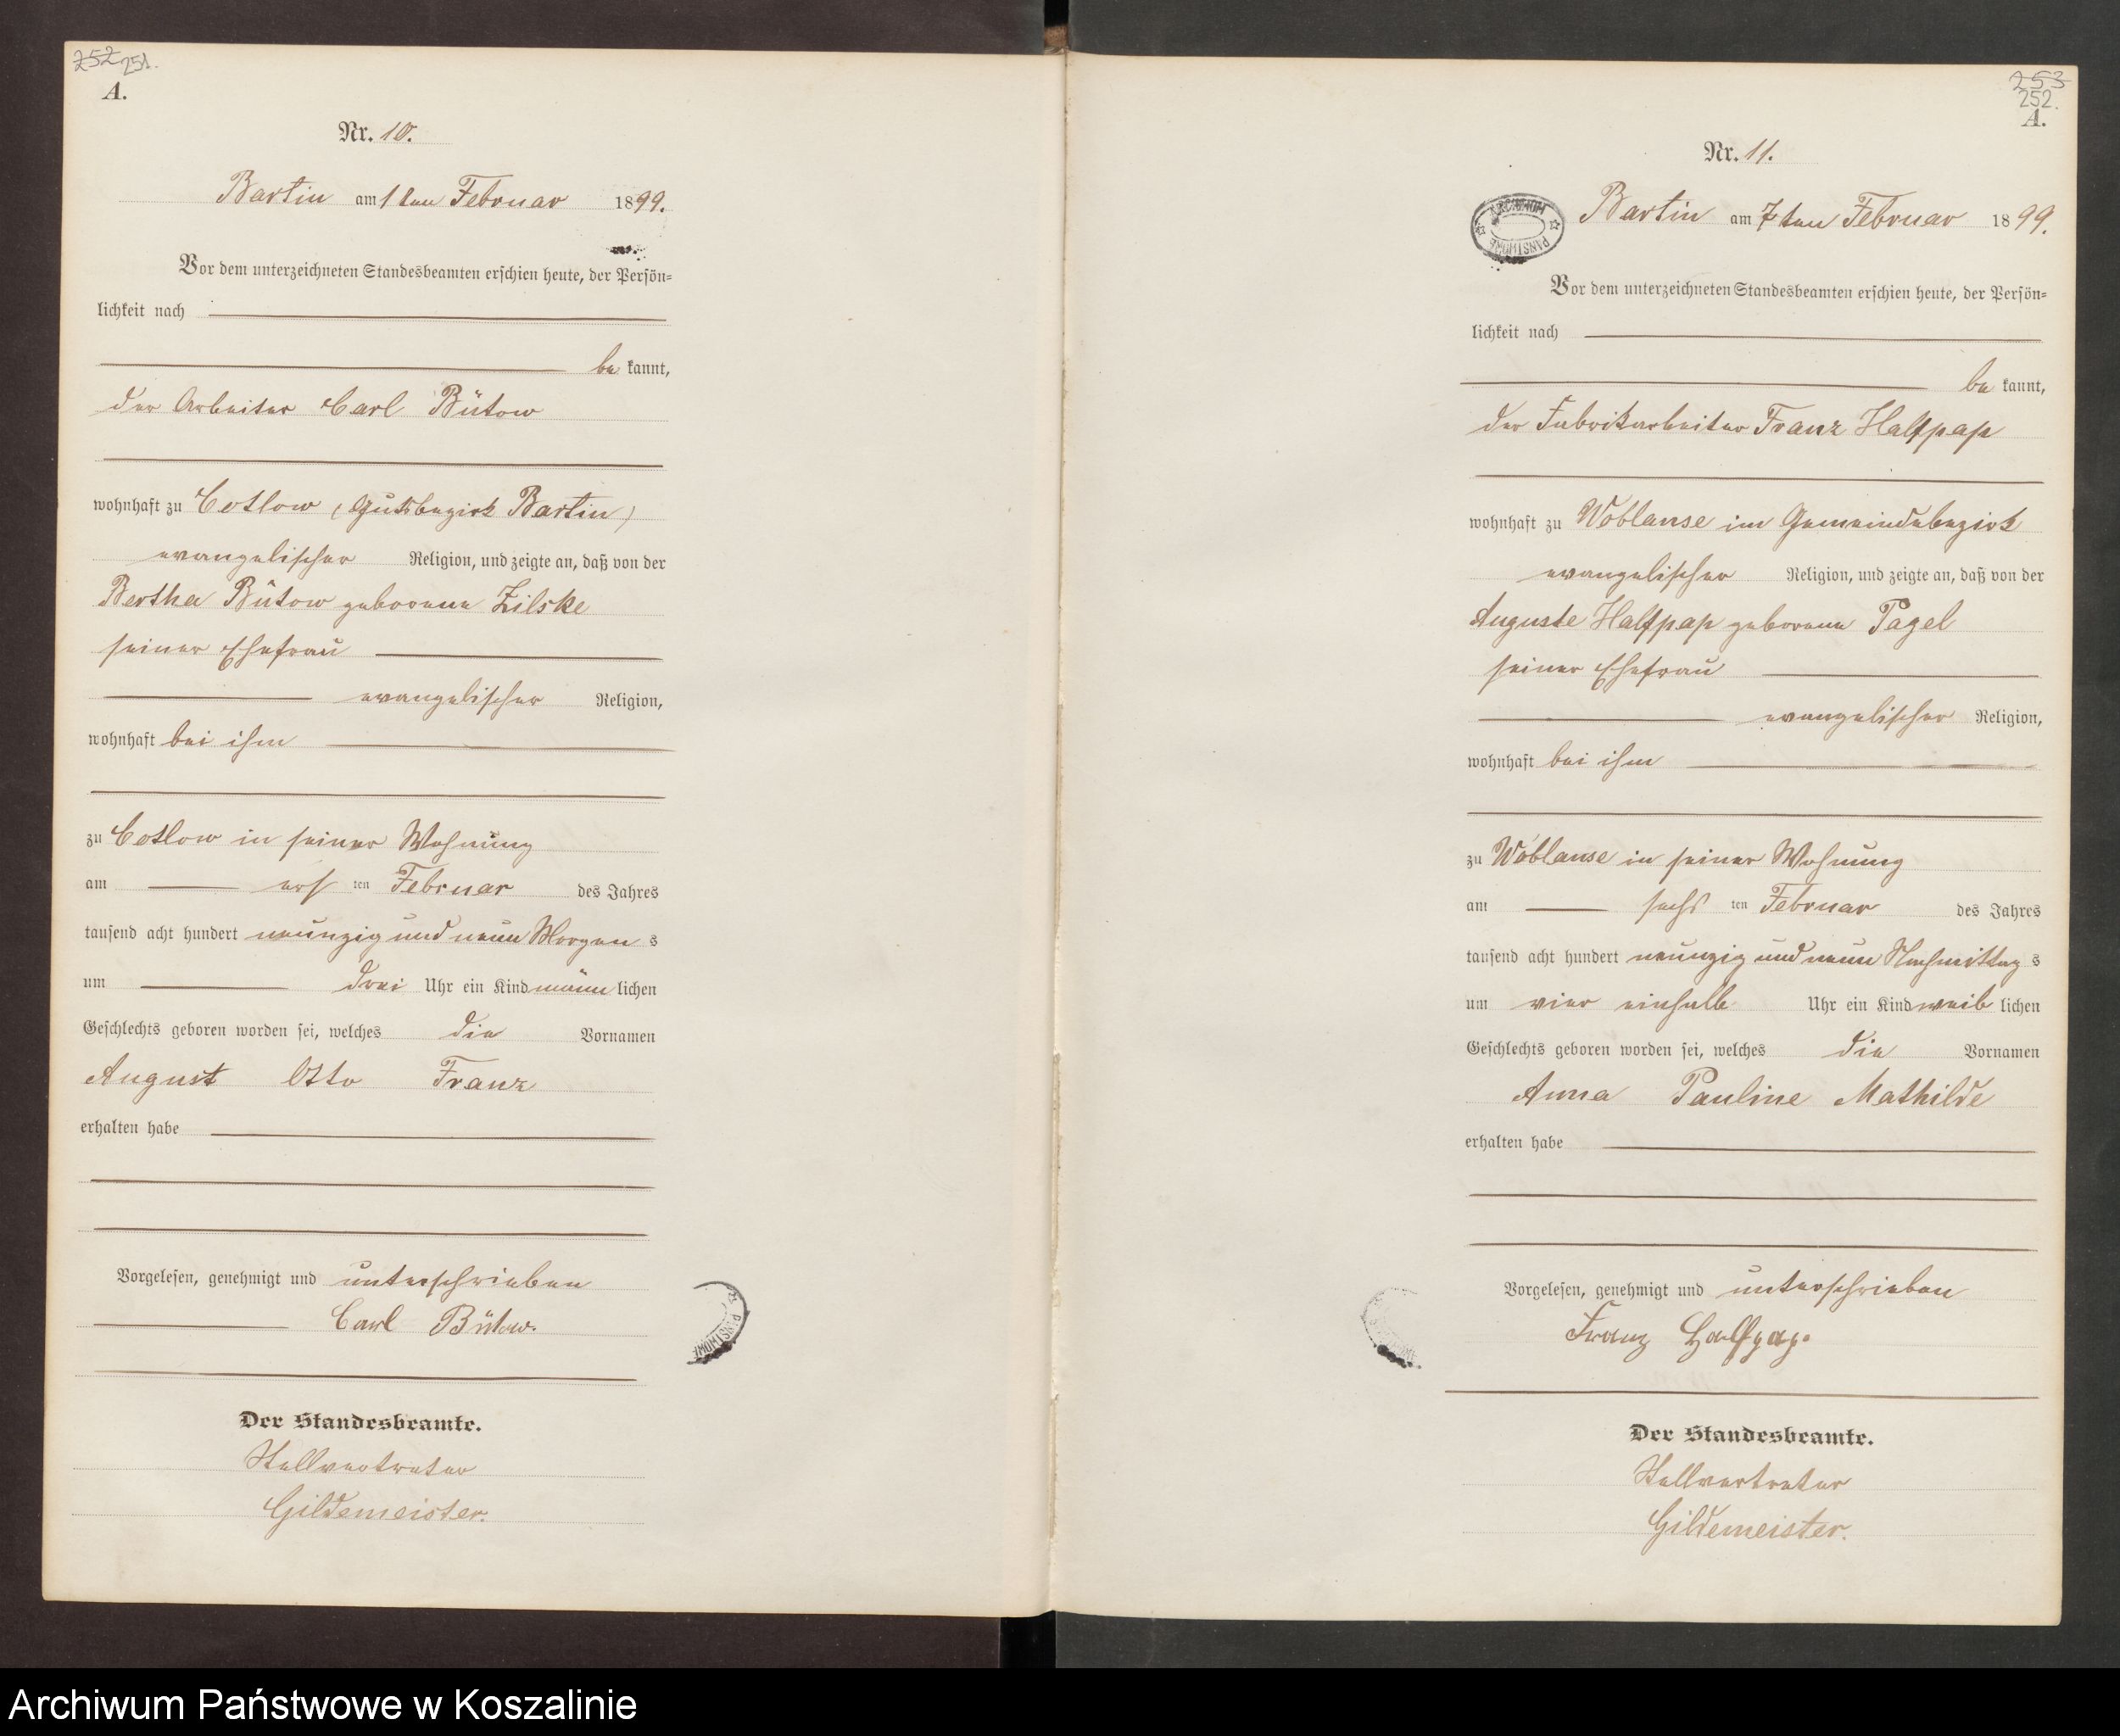 252 251.
A.
Nr. 10.
Bartin am 1ten Februar 1899.
Vor dem unterzeichneten Standesbeamten erschien heute, der Persön=
lichkeit nach
be kannt,
der Arbeiter Carl Bütow
wohnhaft zu Cotlow (Gutsbezirk Bartin)
evangelischer Religion, und zeigte an, daß von der
Bertha Bütow geborene Zilske
seiner Ehefrau
evangelischer Religion,
wohnhaft bei ihm
zu Cotlow in seiner Wohnung
am ersten Februar des Jahres
tausend acht hundert neunzig und neun Morgens
um drei Uhr ein Kind männlichen
Geschlechts geboren worden sei, welches die Vornamen
August Otto Franz
erhalten habe
Vorgelesen, genehmigt und unterschrieben
Carl Bütow.
Der Standesbeamte.
Stellvertreter
Gildemeister.
253
252.
A.
Nr. 11.
Bartin am 7ten Februar 1899.
Vor dem unterzeichneten Standesbeamten erschien heute, der Persön=
lichkeit nach
be kannt,
der Fabrikarbeiter Franz Halfpap
wohnhaft zu Woblanse im Gemeindebezirk
evangelischer Religion, und zeigte an, daß von der
Auguste Halfpap geborene Pagel
seiner Ehefrau
evangelischer Religion,
wohnhaft bei ihm
zu Woblanse in seiner Wohnung
am sechsten Februar des Jahres
tausend acht hundert neunzig und neun Nachmittags
um vier einhalb Uhr ein Kind weiblichen
Geschlechts geboren worden sei, welches die Vornamen
Anna Pauline Mathilde
erhalten habe
Vorgelesen, genehmigt und unterschrieben
Franz Halfpap.
Der Standesbeamte.
Stellvertreter
Gildemeister.
Archiwum Państwowe w Koszalinie